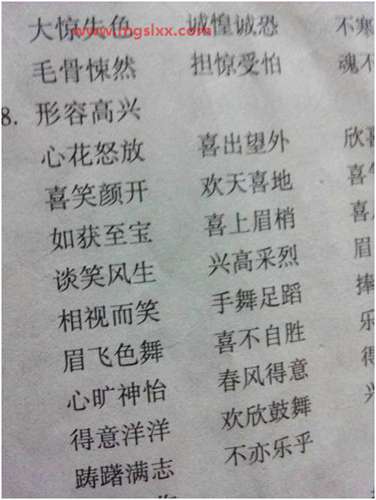 www.mgslxx.com
大惊失色 诚惶诚恐 不寒
毛骨悚然 担惊受怕 魂不
8. 形容高兴
心花怒放 喜出望外 欣
喜笑颜开 欢天喜地 喜
如获至宝 喜上眉梢 喜
谈笑风生 兴高采烈 眉
相视而笑 手舞足蹈 捧
眉飞色舞 喜不自胜 乐
心旷神怡 春风得意
得意洋洋 欢欣鼓舞
踌躇满志 不亦乐乎